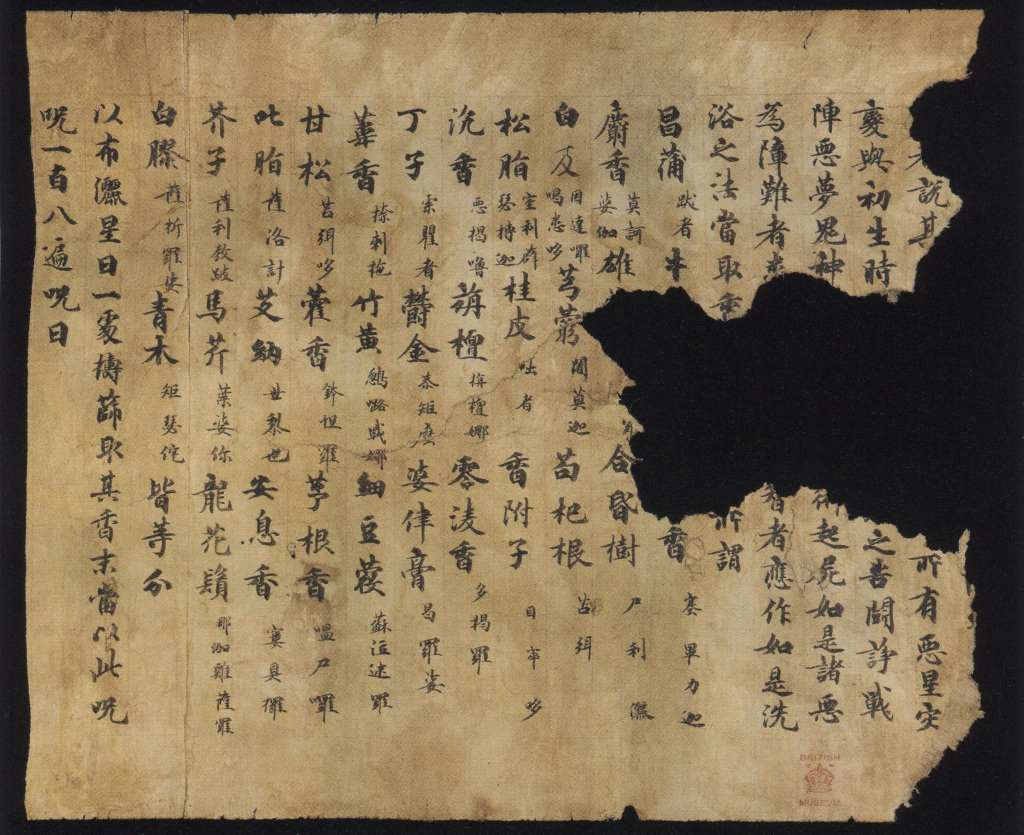 説其 所有惡星灾
變與初生時 之苦鬪諍戰
陣惡夢鬼神 起屍如是諸惡
為障難者 智者應作如是洗
浴之法當取香 所謂
昌蒲跋者牛 香塞畢力迦
麝香莫訶婆伽雄 合昏樹尸利灑
白及因達囉喝悉哆芎藭闍莫迦苟杞根苫弭
松脂室利薜瑟搏迦桂皮咄者香附子目窣哆
沉香惡揭嚕栴檀栴檀娜零淩香多揭羅
丁子索瞿者欝金荼矩麼婆律膏曷羅娑
葦香捺剌柂竹黃鶻嚧戰娜細豆蔻蘇泣迷羅
甘松苫弭哆藿香鉢怛羅茅根香嗢尸囉
叱脂薩洛計艾納世黎也安息香窶具攞
芥子薩利殺跛馬芹葉婆你龍花鬚那伽雞薩羅
白膠薩折羅娑青木矩瑟侘皆等分
以布灑星日一處擣篩取其香末當以此呪
呪一百八遍呪曰
BRITISH
MUSEUM